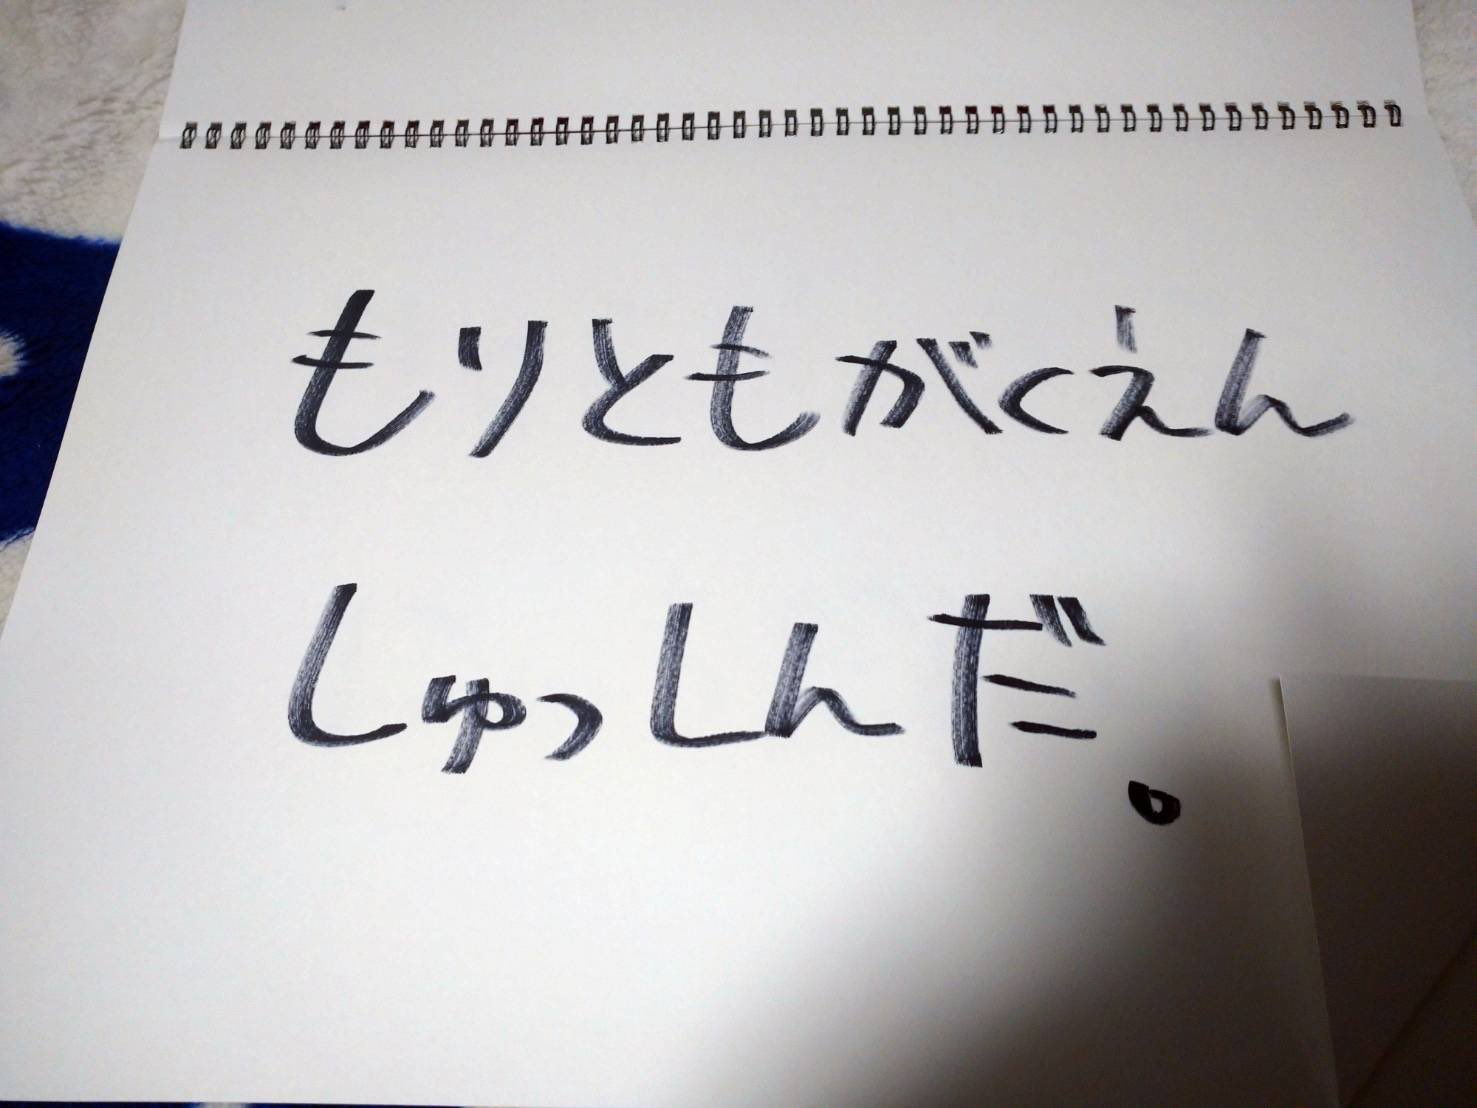 もりともがくえん
しゅっしんだ。